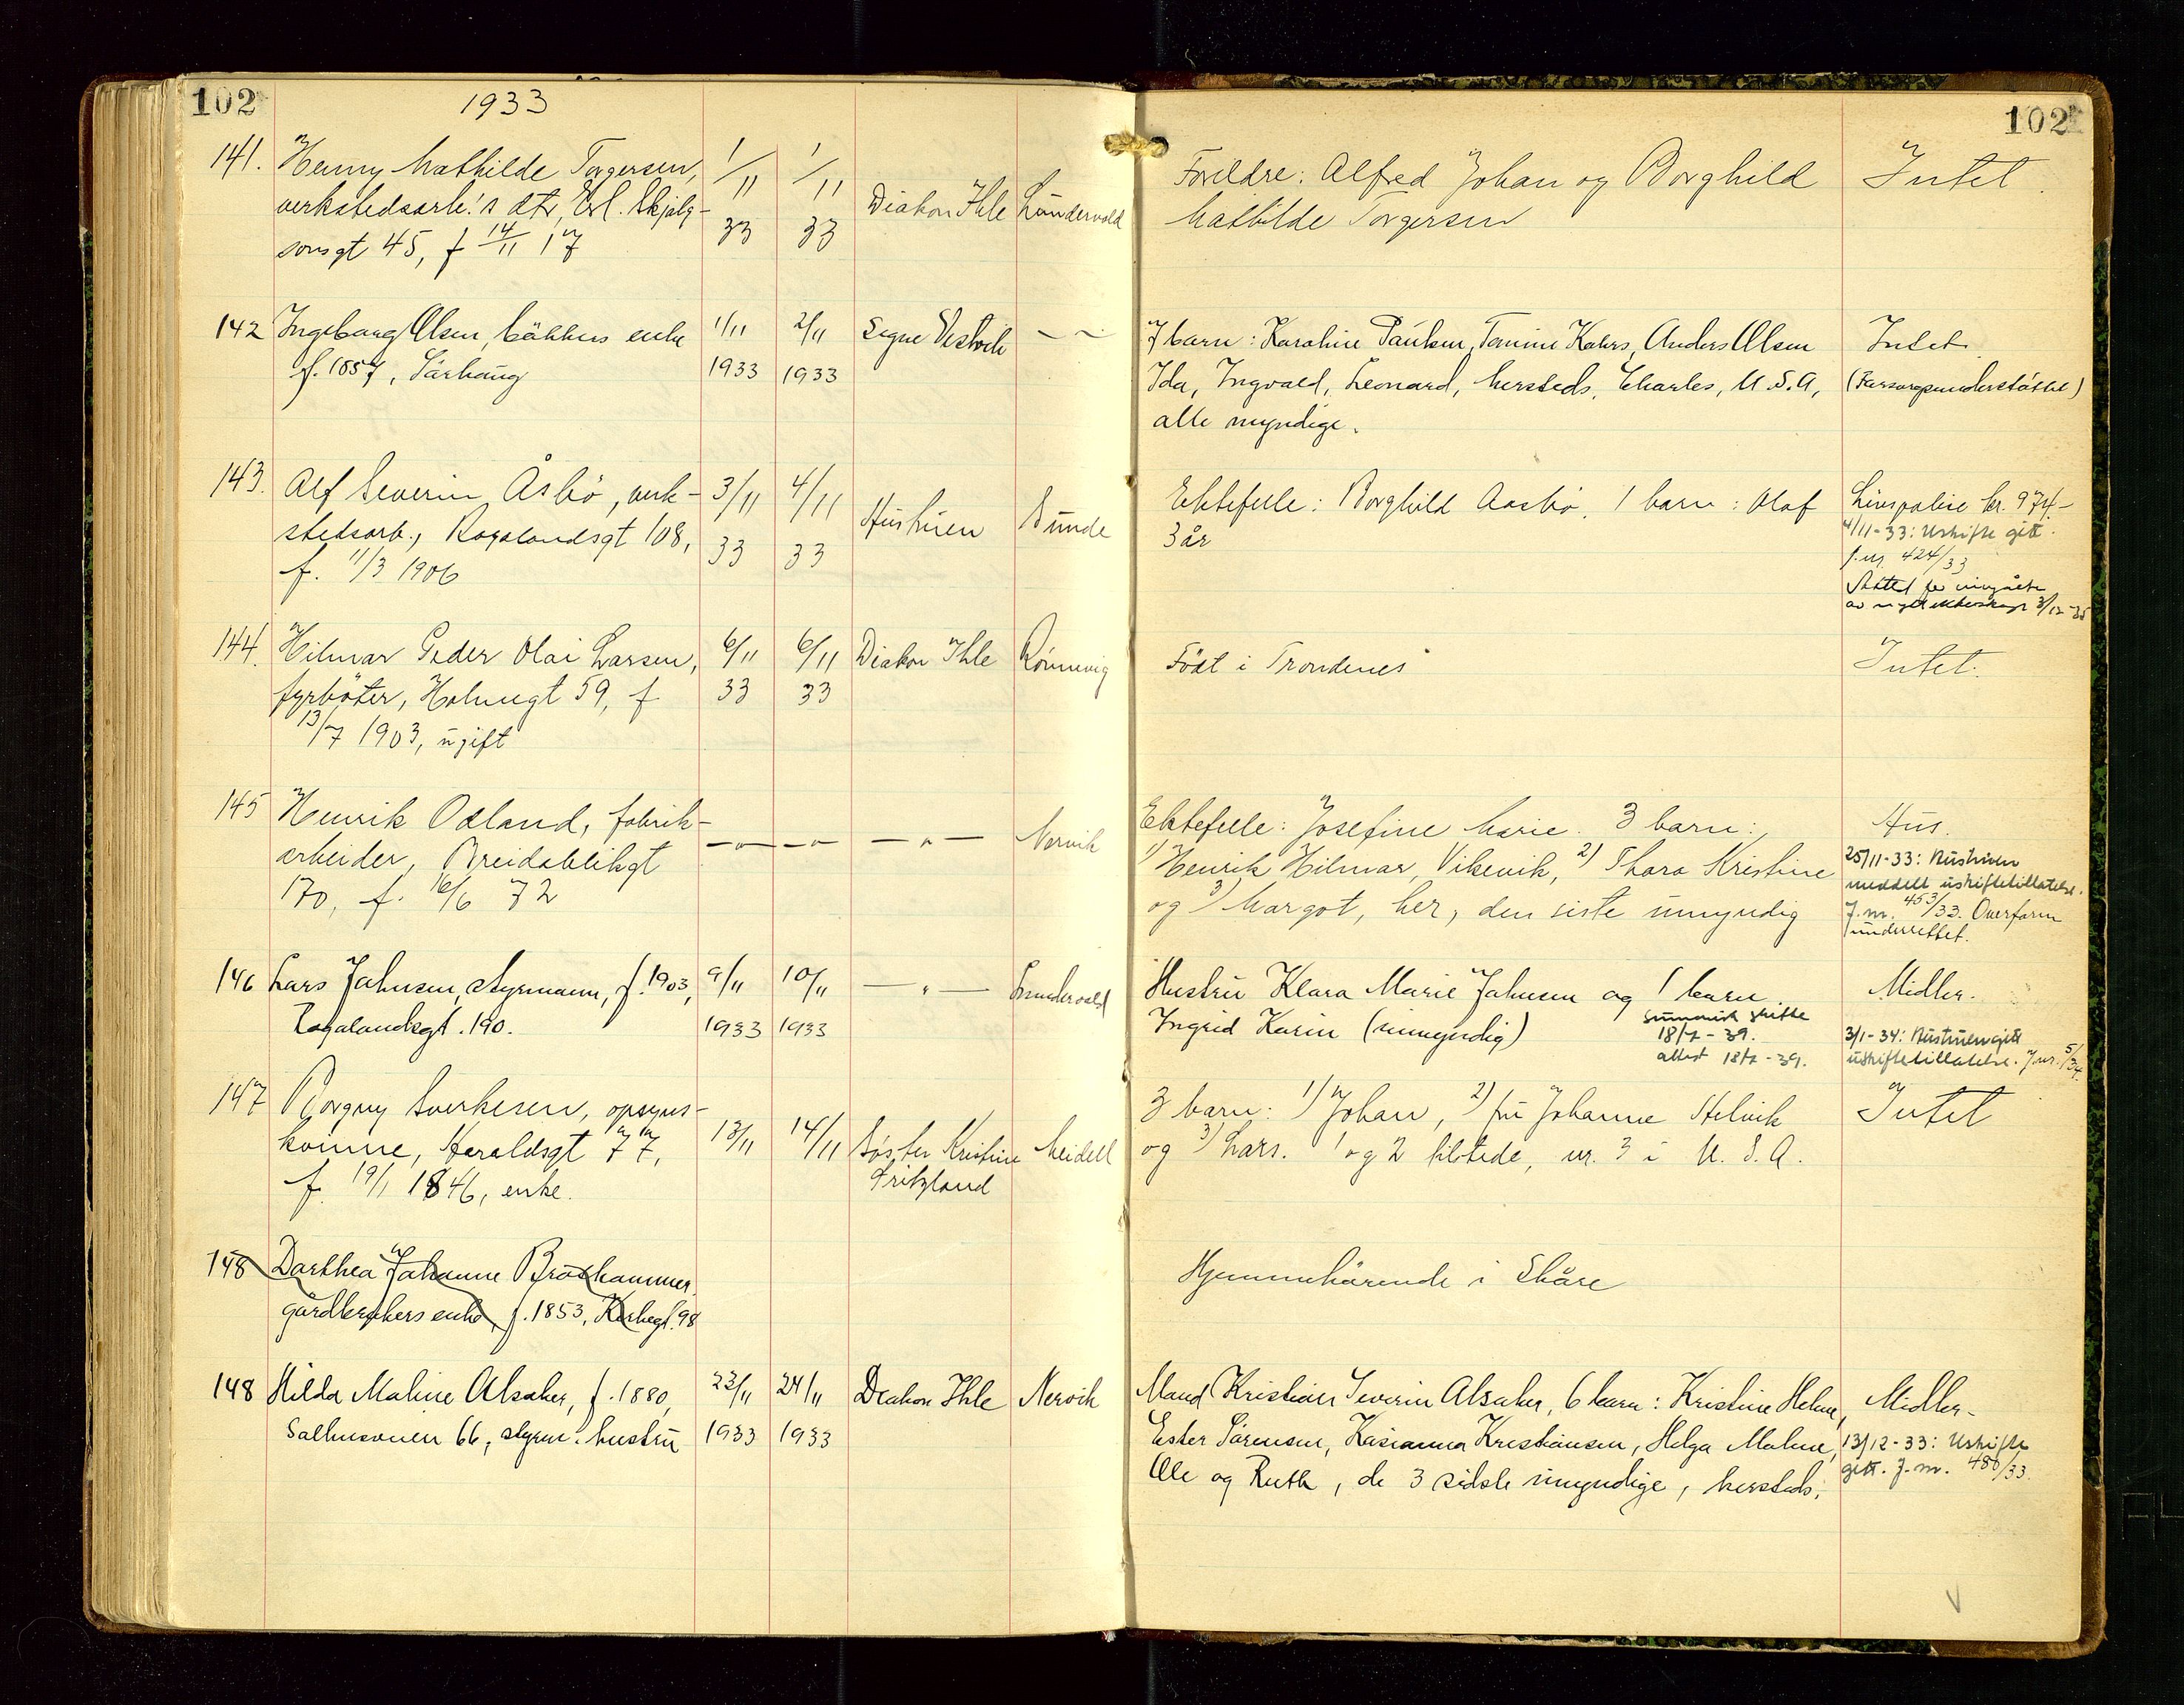 102
1933
141. Henny Mathilde Torgersen, 1/11 1/11
verkstedsarb.'s dtr, Erl. Skjalg- Diakon Ihle Lundervold
sonsgt 45, f 14/11 17 33 33
142 Ingeborg Olsen, enke 1/11 2/11 Signe Vestvik — " —
f. 1857, Sörhaug 1933 1933
143. Alf Severin Åsbö, verk- 3/11 4/11
stedsarb., Rogalandsgt 108, 33 33 Hustruen Bunde
f. 11/3 1906
144. Hilmar Peder Olai Larsen, 6/11 6/11 Diakon Ihle Rönnevig
fyrböter, Holmegt 59, f 33 33
13/7 1903, ugift
145 Henrik Ödland, fabrik-
arbeider, Breidablikgt — " — — " — — " — Nervik
170, f. 16/6 72
146 Lars Johnsen, styrmann, f. 1903, 9/11 10/11 — " — Lundervold
Rogalandsgt. 190. 1933 1933
147 Borgny Sverkesen, opsyns-
konne, Haraldsgt 77, 13/11 14/11 Søster Kristine Meidell
f. 19/1 1846, enke. Fritzland
148 Dorthea Johanne
gårdbrukers enke, f. 1853, Kirkegt. 98
148 Hilda Maline Alsaker, f. 1880, 23/11 24/11 Diakon Ihle Nervik
Salhusveien 66, styrm. hustru 1933 1933
102
Foreldre: Alfred Johan og Borghild Intet.
Mathilde Torgersen
7 barn: Karoline Paulsen, Tomine Anders Olsen Intet.
Ida, Ingvald, Leonard, hersteds, Charles, U.S.A, (Forsorgsunderstöttet)
alle myndige.
Ektefelle: Borghild Aasbö. 1 barn: Olaf Livspolise kr. 974-
3 år 4/11-33: Uskifte gitt.
J.nr. 424/33
Skiftet før inngåelse
av nytt ekteskap 3/12-35
Född i Trondenes Intet.
Ektefelle: Josefine Marie. 3 barn: Hus.
1) Henrik Hilmar, Vikevik, 2) Thora Kristine 25/11-33: Hustruen
meddelt uskiftetillatelse.
og 3) Margot, her, den siste umyndig J.nr. 453/33. Overform
underrettet.
Hustru Klara Marie Johnsen og 1 barn. Midler.
Ingrid Karin (umyndig) Summarisk skifte
18/7-39.
attest 18/7-39.
3/1-34: Hustruen gitt
uskiftetillatelse. J.nr. 5/34.
3 barn: 1) Johan, 2) fru Johanne Stölvik Intet
og 3) Lars. 1 og 2 tilstede, nr. 3 i U.S.A.
Hjemmehörende i Skåre
Mand Kristian Severin Alsaker, 6 barn: Kristine Helene, Midler-
Ester Sörensen, Kasianna Kristiansen, Helga Maline, 13/12-33: Uskifte
Ole og Ruth, de 3 sidste umyndige, hersteds. gitt. J.nr. 480/33.